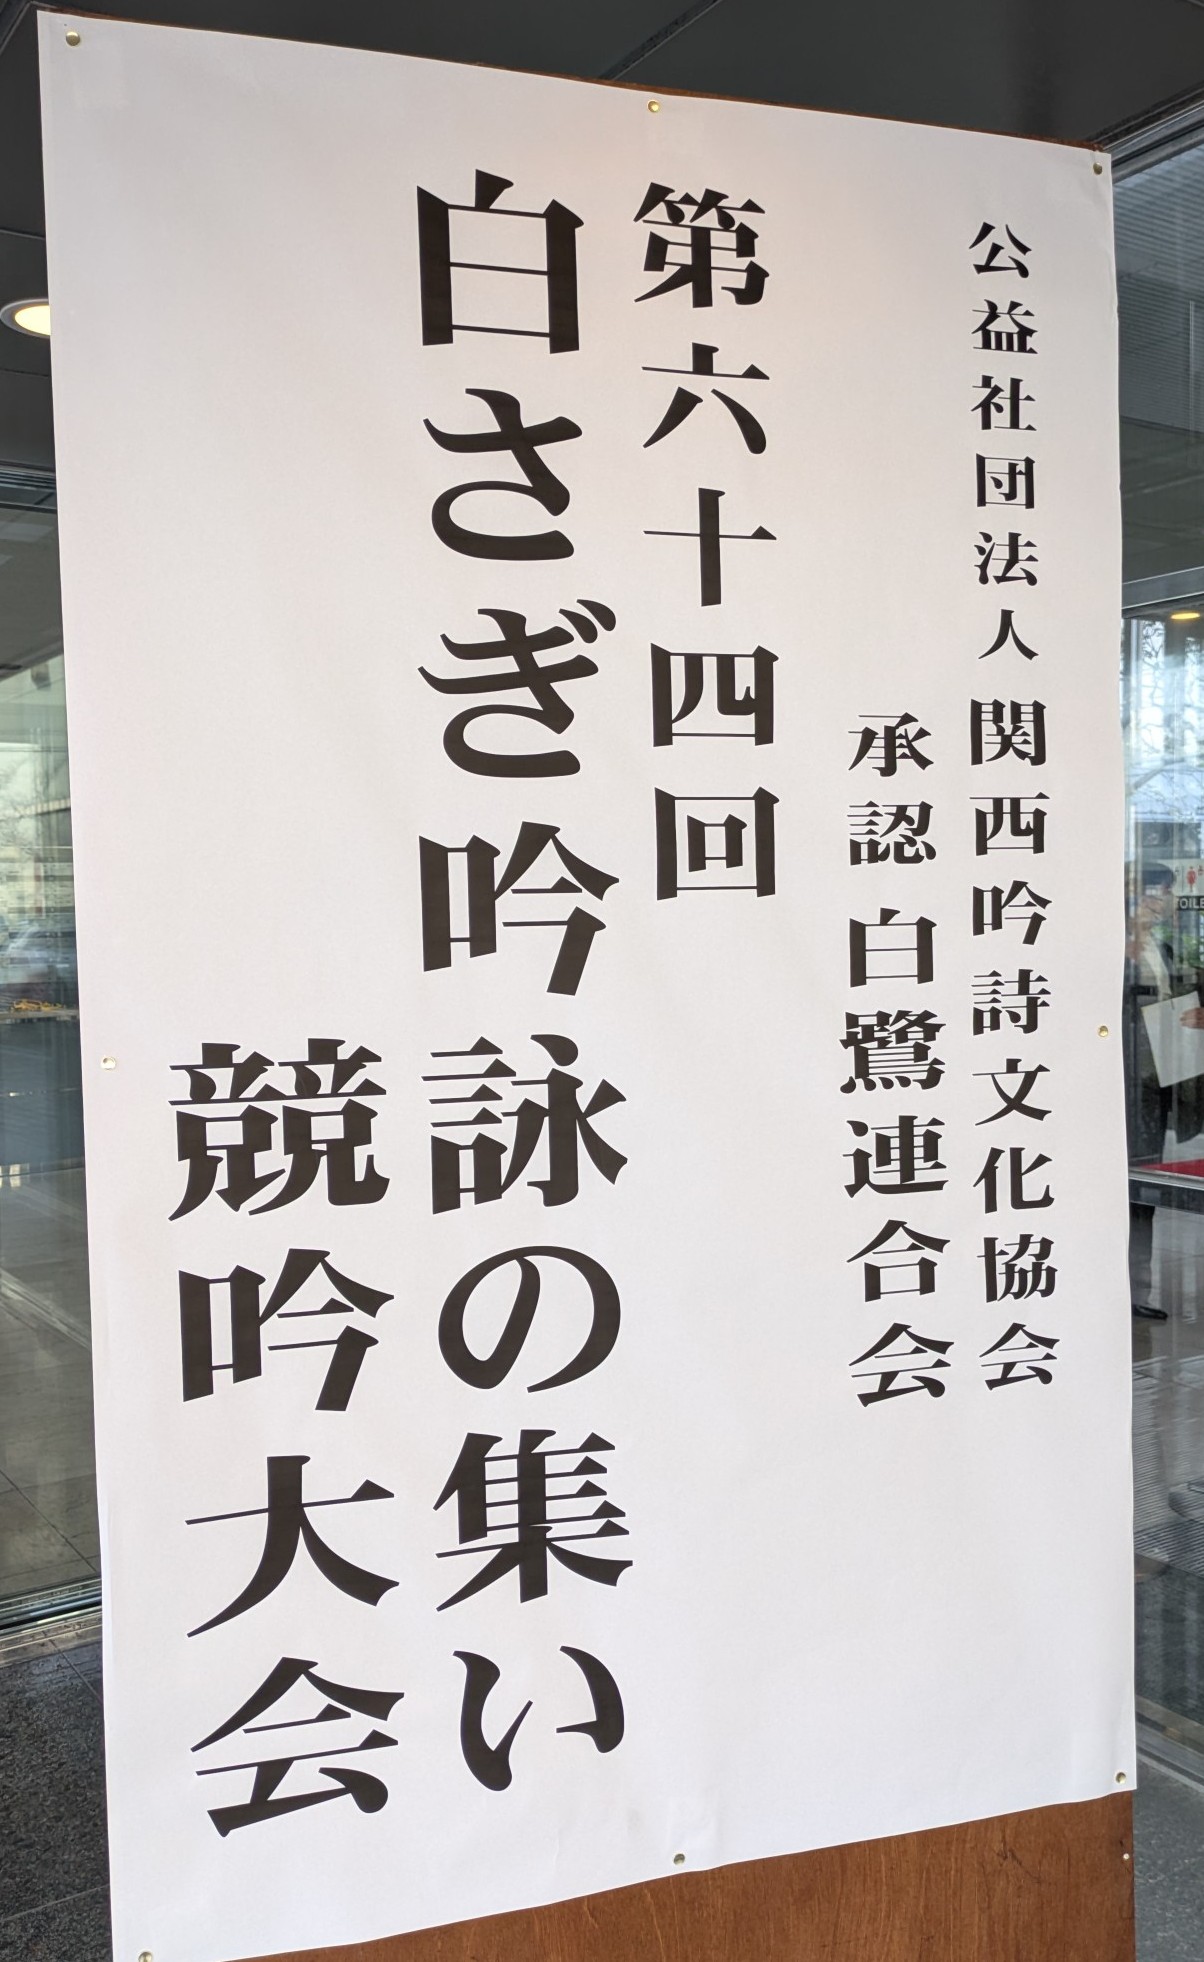 公益社団法人関西吟詩文化協会
承認 白鷺連合会
第六十四回
白さぎ吟詠の集い
競吟大会